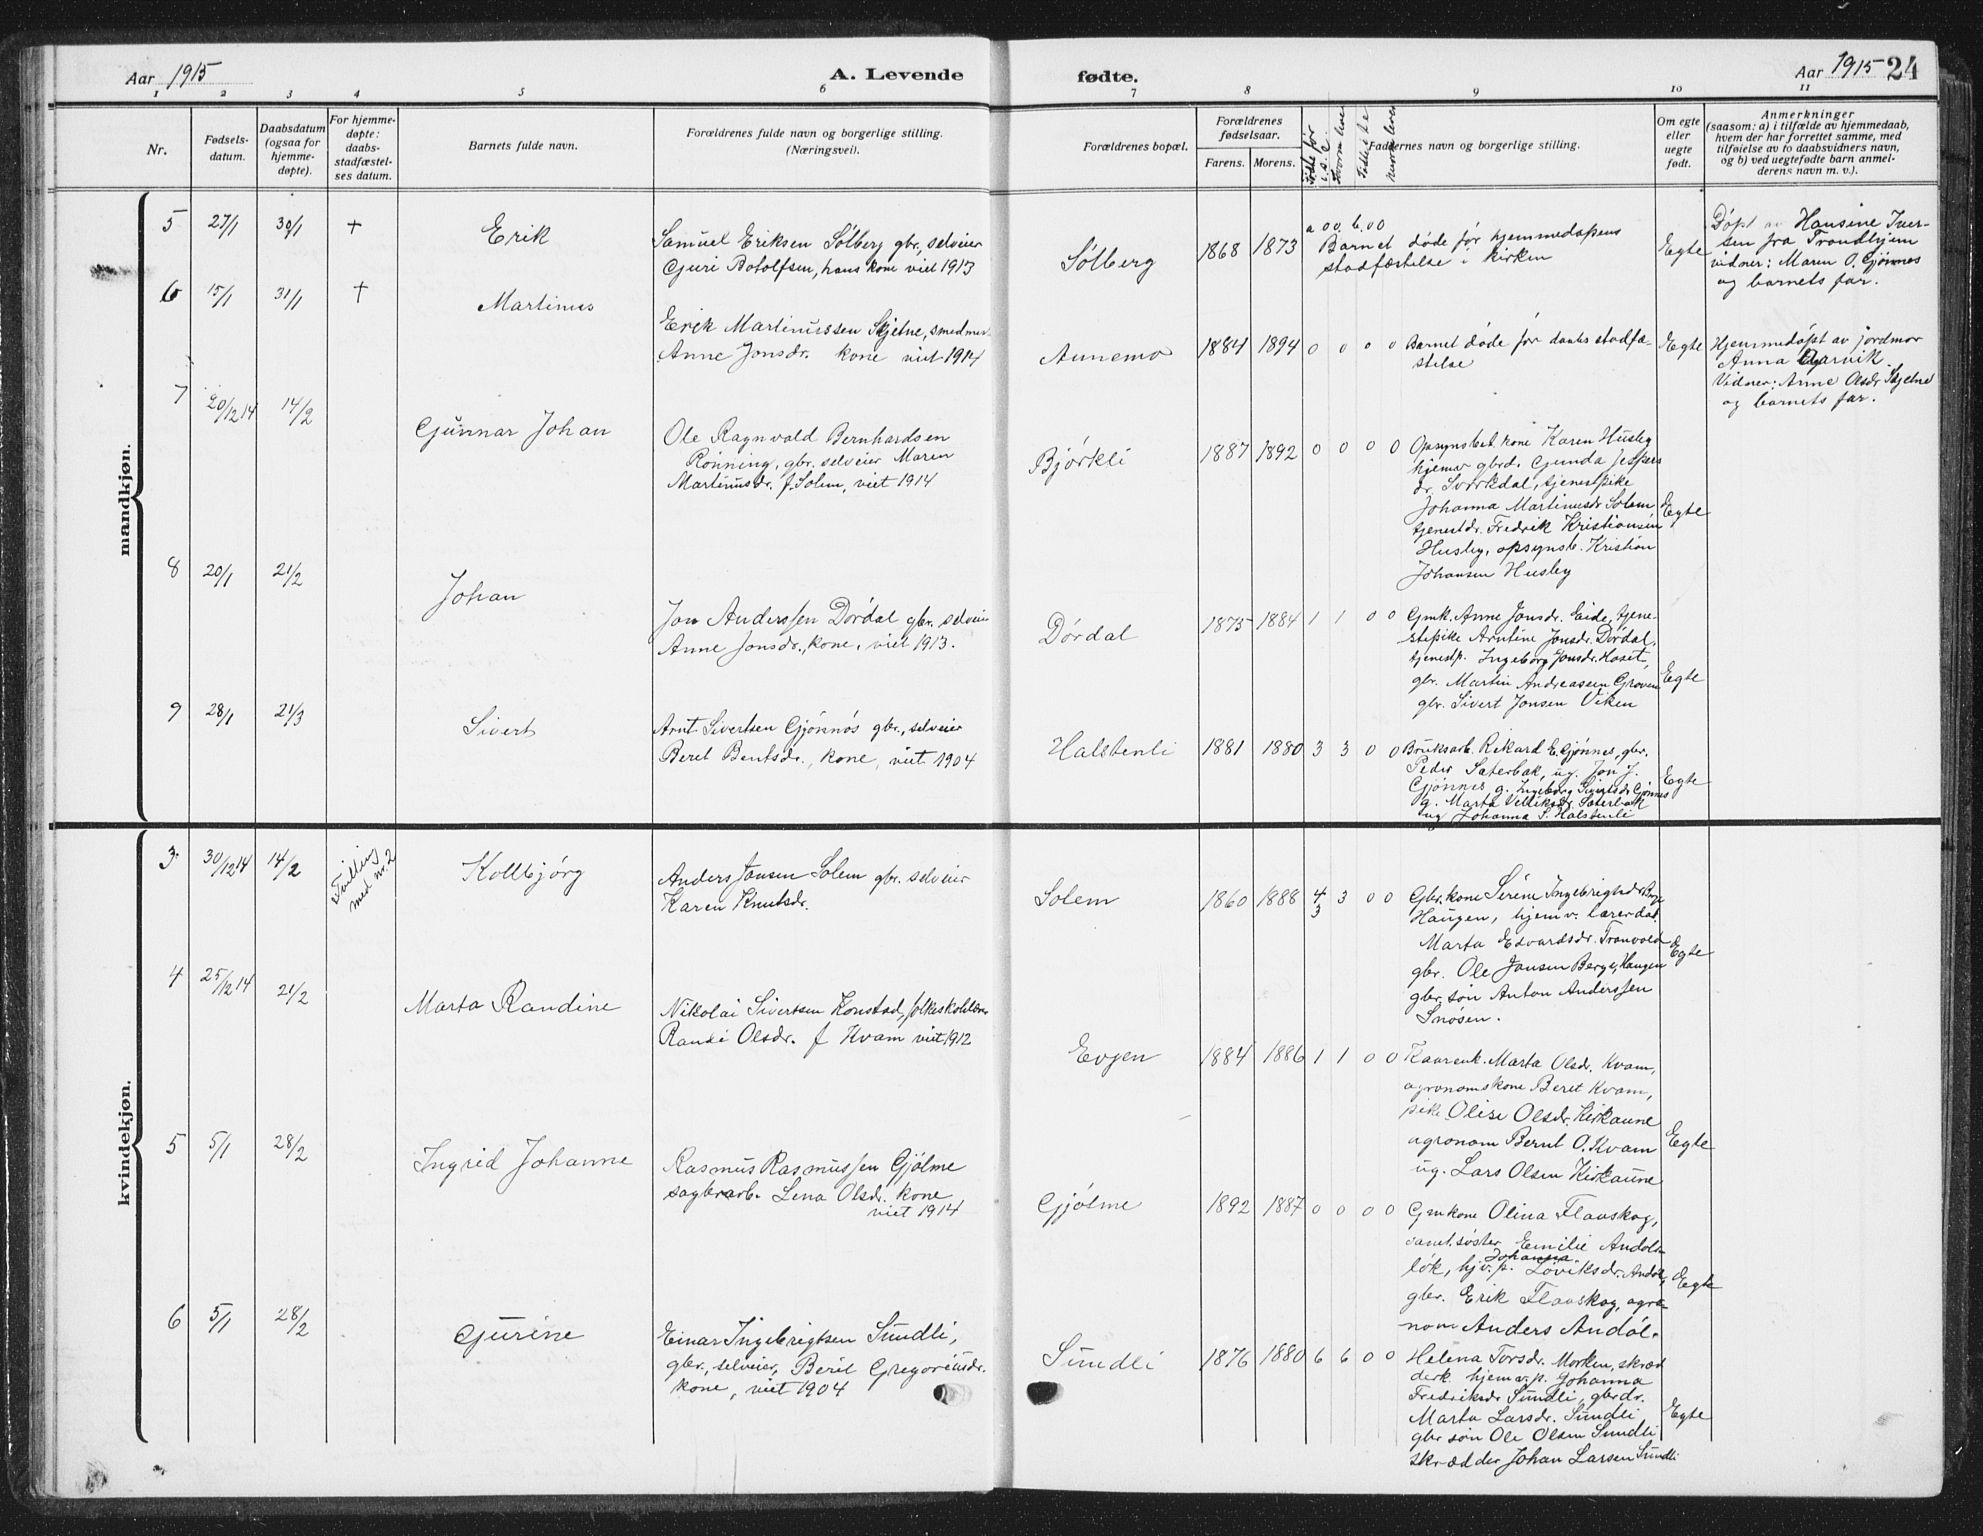 Aar 1915
A. Levende
fødte.
Aar 1915
24
1 2 3 4 5 6 7 8 9 10 11
Nr.
Fødsels-
datum.
Daabsdatum
(ogsaa for
hjemme-
døpte).
For hjemme-
døpte:
daabs-
stadfæstel-
ses datum.
Barnets fulde navn.
Forældrenes fulde navn og borgerlige stilling.
(Næringsvei).
Forældrenes bopæl.
Forældrenes
fødselsaar.
Farens. Morens.
Faddernes navn og borgerlige stilling.
Om egte
eller
uegte
født.
Anmerkninger
(saasom: a) i tilfælde av hjemmedaab,
hvem der har forrettet samme, med
tilføielse av to daabsvidners navn,
og b) ved uegtefødte barn anmel-
derens navn m. v.).
mandkjøn.
5 27/1 30/1 + Erik
Samuel Eriksen Sølberg gbr, selveier
Guri Botolfsen, hans kone viet 1913
Sølberg
1868 1873
a 00 b. 00
Barnet døde før hjemmedaapens
stadfæstelse i kirken
Egte
Døpt av Hansine Iver-
sen fra Trondhjem
vidner: Maren O. Gjønnes
og barnets far.
6 15/1 31/1 + Martinus
Erik Martinussen Skjetne, smedmes
Anne Jonsdr. kone viet 1914
Annemo
1884 1894 0 0 0 0
Barnet døde før daabs stadfæ-
stelse
Egte
Hjemmedøpt av jordmor
Anna Garvik.
Vidner: Anne Olsdr Skjetne
og barnets far.
7 20/12 14 14/2 Gunnar Johan
Ole Ragnvald Bernhardsen
Rønning, gbr. selveier Maren
Martinusdr. f. Solem, viet 1914
Bjørkli
1887 1892 0 0 0 0
Opsynsbet. kone Karen Husby
hjemv gbrd. Gunda Jespers
dr. Svorkdal, tjenestpike
Johanna Martinusdr Solem
tjenestdr. Fredrik Kristiansen
Husby, opsynsb. Kristian
Johansen Husby
Egte
8 20/1 21/2 Johan
Jon Anderssen Dørdal gbr. selveier
Anne Jonsdr., kone, viet 1913.
Dørdal
1875 1884 1 1 0 0
Gmk. Anne Jonsdr. Eide, tjene-
stepike Arntine Jonsdr. Dørdal,
tjenestp. Ingeborg Jonsdr. Hoset,
gbr. Martin Andreassen Groven
gbr. Sivert Jonsen Viken
Egte
9 28/1 21/3 Sivert
Arnt Sivertsen Gjønnøs gbr., selveier
Beret Bentsdr., kone, viet 1904
Halstenli
1881 1880 3 3 0 0
Bruksarb. Rikard E. Gjønnes, gbr.
Peder Sæterbak, ug. Jon J.
Gjønnes g. Ingeborg Sivertsdr Gjønnes
g. Marta Sæterbak
ug Johanna S. Halstenli
Egte
kvindekjøn.
3. 30/12 14 14/2
Tvilling
med nr. 2
Kollbjørg
Anders Jonsen Solem gbr. selveier
Karen Knutsdr.
Solem
1860 1888 4 3 0 0
3
Gbr. kone Sirene Ingebrigtsdr Berge
Haugen, hjemv. lærerdat.
Marta Edvardsdr. Tranvold
gbr. Ole Jonsen Berge, Haugen
gbr. søn Anton Anderssen
Snøsen.
Egte
4 25/12 14 21/2 Marta Randine
Nikolai Sivertsen Konstad, folkeskolelærer
Randi Olsdr. f Kvam viet 1912
Evjen
1884 1886 1 1 0 0
Kaarenk. Marta Olsdr. Kvam,
agronomskone Beret Kvam,
pike Olise Olsdr. Kirkaune
agronom Bernt O. Kvam
ug. Lars Olsen Kirkaune
Egte
5 5/1 28/2 Ingrid Johanne
Rasmus Rasmussen Gjølme
sagbrarb. Lina Olsdr. kone
viet 1914
Gjølme
1892 1887 0 0 0 0
Gmkone Olina Flaaskog,
sanit. søster Emilie Andøls-
Johanna
løk, hjv. p. Løviksdr. Andøl,
gbr. Erik Flaaskog, agro-
nom Anders Andøl.
Egte
6 5/1 28/2 Gurine
Einar Ingebrigtsen Sundli,
gbr., selveier, Beret Gregoriusdr.
kone, viet 1904
Sundli
1876 1880 6 6 0 0
Helena Torsdr. Morken, skræd
derk. hjemv. p. Johanna
Fredriksdr Sundli, gbrdr.
Marta Larsdr. Sundli
gbr søn Ole Olsen Sundli
skrædder Johan Larsen Sundli
Egte